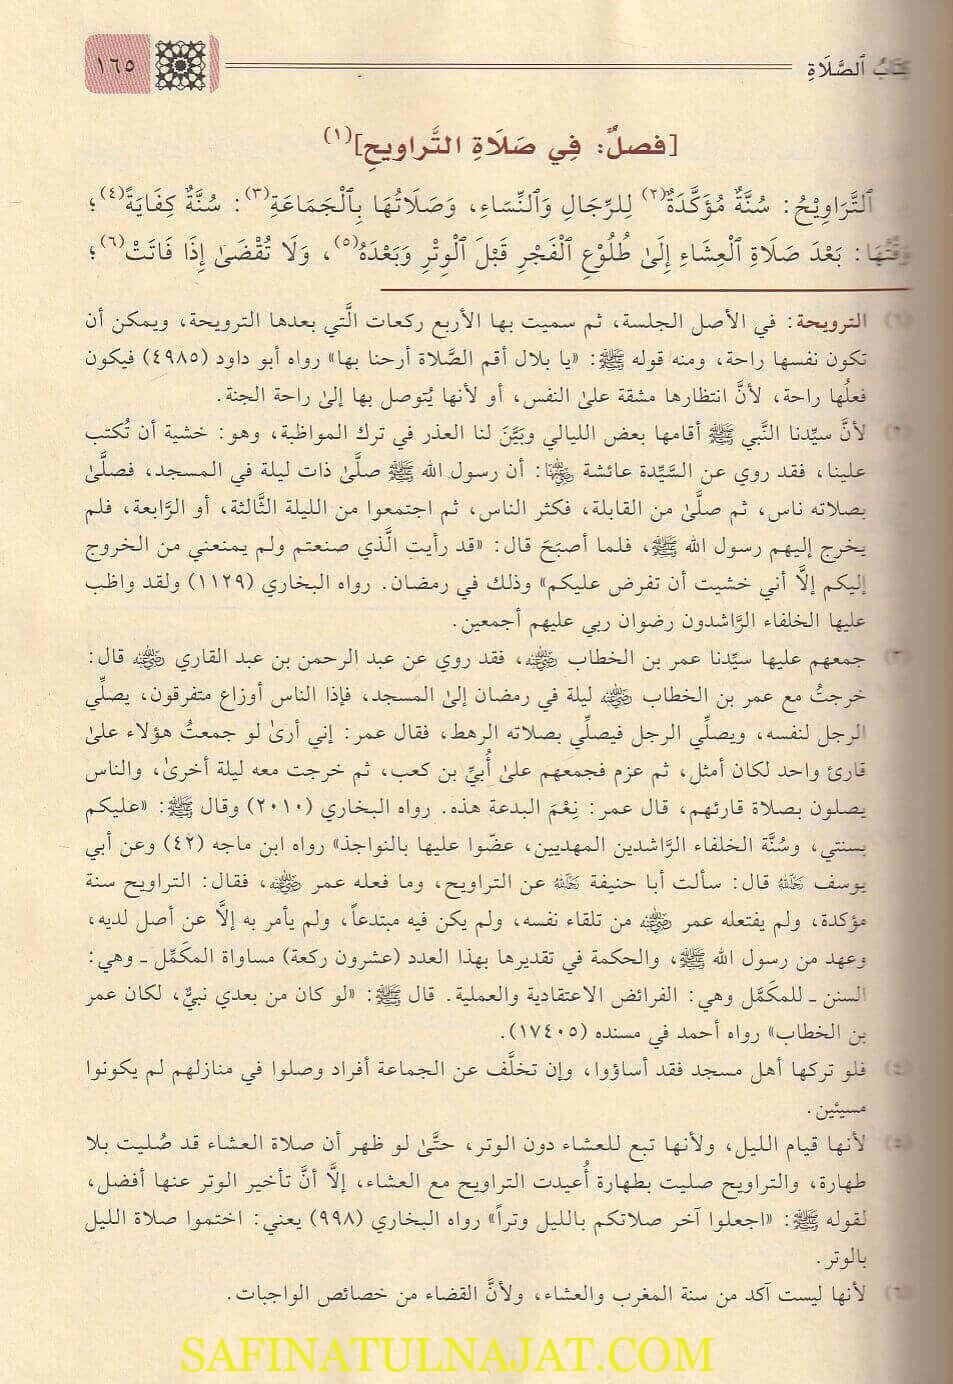 كتاب ٱلصَّلَاةِ
١٦٥
[فصلٌ: فِي صَلَاةِ التَّراويحِ](١)
ٱلتَّرَاوِيْحُ: سُنَّةٌ مُؤَكَّدَةٌ(٢) لِلرِّجَالِ وَٱلنِّسَاءِ، وَصَلَاتُهَا بِٱلْجَمَاعَةِ(٣): سُنَّةُ كِفَايَةٍ(٤)؛
وَقْتُهَا: بَعْدَ صَلَاةِ ٱلْعِشَاءِ إِلَىٰ طُلُوْعِ ٱلْفَجْرِ قَبْلَ ٱلْوِتْرِ وَبَعْدَهُ(٥)، وَلَا تُقْضَىٰ إِذَا فَاتَتْ(٦)؛
(١) الترويحة: في الأصل الجلسة، ثم سميت بها الأربع ركعات الَّتي بعدها الترويحة، ويمكن أن
تكون نفسها راحة، ومنه قوله ﷺ: «يا بلال أقم الصَّلاة أرحنا بها» رواه أبو داود (٤٩٨٥) فيكون
فعلُها راحة، لأنَّ انتظارها مشقة علىٰ النفس، أو لأنها يُتوصل بها إلىٰ راحة الجنة.
(٢) لأنَّ سيِّدنا النَّبي ﷺ أقامها بعض الليالي وبَيَّنَ لنا العذر في ترك المواظبة، وهو: خشية أن تُكتب
علينا، فقد روي عن السَّيِّدة عائشة رضي الله عنها: أن رسول الله ﷺ صلَّىٰ ذات ليلة في المسجد، فصلَّىٰ
بصلاته ناس، ثم صلَّىٰ من القابلة، فكثر الناس، ثم اجتمعوا من الليلة الثَّالثة، أو الرَّابعة، فلم
يخرج إليهم رسول الله ﷺ، فلما أصبَحَ قال: «قد رأيت الَّذي صنعتم ولم يمنعني من الخروج
إليكم إلَّا أني خشيت أن تفرض عليكم» وذلك في رمضان. رواه البخاري (١١٢٩) ولقد واظب
عليها الخلفاء الرَّاشدون رضوان ربي عليهم أجمعين.
(٣) جمعهم عليها سيِّدنا عمر بن الخطاب رضي الله عنه، فقد روي عن عبد الرحمن بن عبد القاري رضي الله عنه قال:
خرجتُ مع عمر بن الخطاب رضي الله عنه ليلة في رمضان إلىٰ المسجد، فإذا الناس أوزاع متفرقون، يصلِّي
الرجل لنفسه، ويصلِّي الرجل فيصلِّي بصلاته الرهط، فقال عمر: إني أرىٰ لو جمعتُ هؤلاء علىٰ
قارئ واحد لكان أمثل، ثم عزم فجمعهم علىٰ أُبيِّ بن كعب، ثم خرجت معه ليلة أخرىٰ، والناس
يصلون بصلاة قارئهم، قال عمر: نِعْمَ البدعة هذه. رواه البخاري (٢٠١٠) وقال ﷺ: «عليكم
بسنتي، وسُنَّة الخلفاء الرَّاشدين المهديين، عضّوا عليها بالنواجذ» رواه ابن ماجه (٤٢) وعن أبي
يوسف رحمه الله قال: سألت أبا حنيفة رحمه الله عن التراويح، وما فعله عمر رضي الله عنه، فقال: التراويح سنة
مؤكدة، ولم يفتعله عمر رضي الله عنه من تلقاء نفسه، ولم يكن فيه مبتدعاً، ولم يأمر به إلَّا عن أصل لديه،
وعهد من رسول الله ﷺ، والحكمة في تقديرها بهذا العدد (عشرون ركعة) مساواة المكمِّل ـ وهي:
السنن ـ للمكمَّل وهي: الفرائض الاعتقادية والعملية. قال ﷺ: «لو كان من بعدي نبيٌّ، لكان عمر
بن الخطاب» رواه أحمد في مسنده (١٧٤٠٥).
(٤) فلو تركها أهل مسجد فقد أساؤوا، وإن تخلَّف عن الجماعة أفراد وصلوا في منازلهم لم يكونوا
مسيئين.
(٥) لأنها قيام الليل، ولأنها تبع للعشاء دون الوتر، حتَّىٰ لو ظهر أن صلاة العشاء قد صُليت بلا
طهارة، والتراويح صليت بطهارة أُعيدت التراويح مع العشاء، إلَّا أنَّ تأخير الوتر عنها أفضل،
لقوله ﷺ: «اجعلوا آخر صلاتكم بالليل وتراً» رواه البخاري (٩٩٨) يعني: اختموا صلاة الليل
بالوتر.
(٦) لأنها ليست آكد من سنة المغرب والعشاء، ولأنَّ القضاء من خصائص الواجبات.
SAFINATULNAJAT.COM